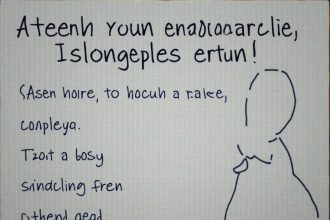 Ateenh Youn enabioarclie,
Islongeples ertun!
(Asen hoire, to hocuh a raiee,
conpleya.
Tzoit a bosy
srindcling fren
othend gead